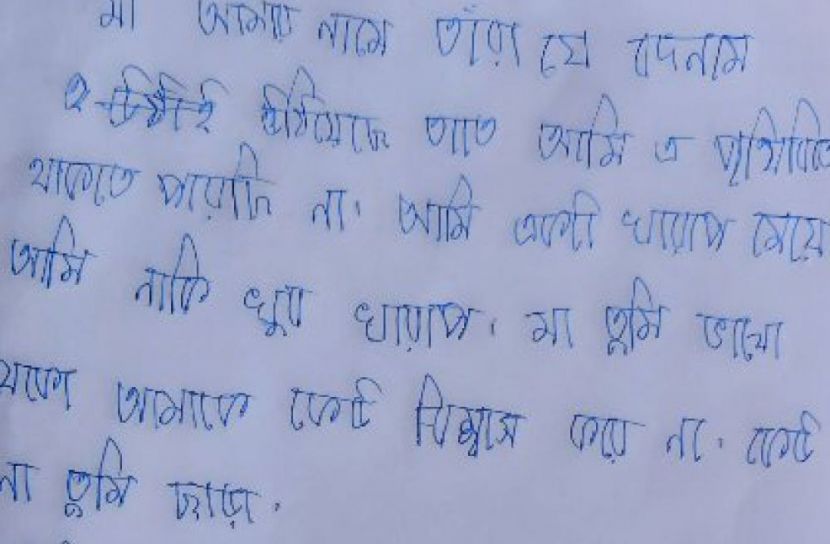 মা আমার নামে তাঁরা যে বদনাম
ছড়িয়েছে তাতে আমি এ পৃথিবিতে
থাকতে পারছি না। আমি একটা খারাপ মেয়ে
আমি নাকি খুব খারাপ। মা তুমি ভালো
থাকো আমাকে কেউ বিশ্বাস করে না। কেউ
না তুমি ছাড়া।